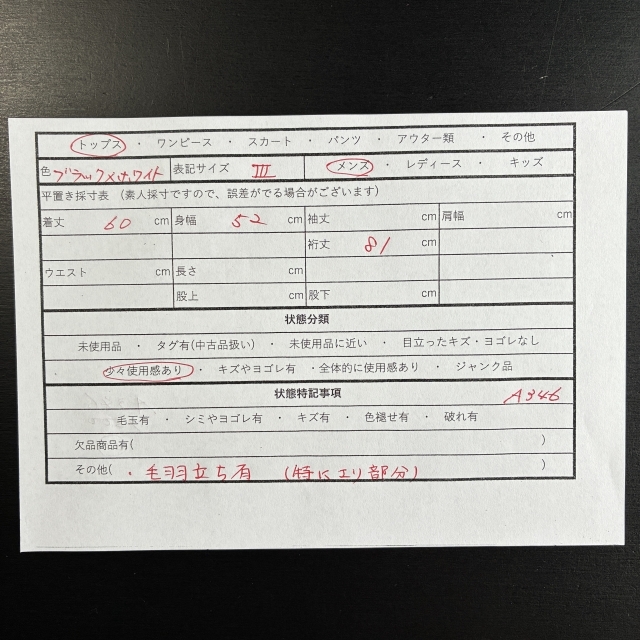 トップス ・ ワンピース ・ スカート ・ パンツ ・ アウター類 ・ その他
色 ブラック×ホワイト 表記サイズ III メンズ ・ レディース ・ キッズ
平置き採寸表 (素人採寸ですので、誤差がでる場合がございます)
着丈 60 cm 身幅 52 cm 袖丈 cm 肩幅 cm
裄丈 81 cm
ウエスト cm 長さ cm
股上 cm 股下 cm
状態分類
未使用品 ・ タグ有(中古品扱い) ・ 未使用品に近い ・ 目立ったキズ・ヨゴレなし
少々使用感あり ・ キズやヨゴレ有 ・全体的に使用感あり ・ ジャンク品
状態特記事項 A346
毛玉有 ・ シミやヨゴレ有 ・ キズ有 ・ 色褪せ有 ・ 破れ有
欠品商品有( )
その他( ・毛羽立ち有 (特にエリ部分) )